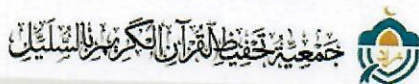 جمعية تحفيظ القرآن الكريم بمربا السليل